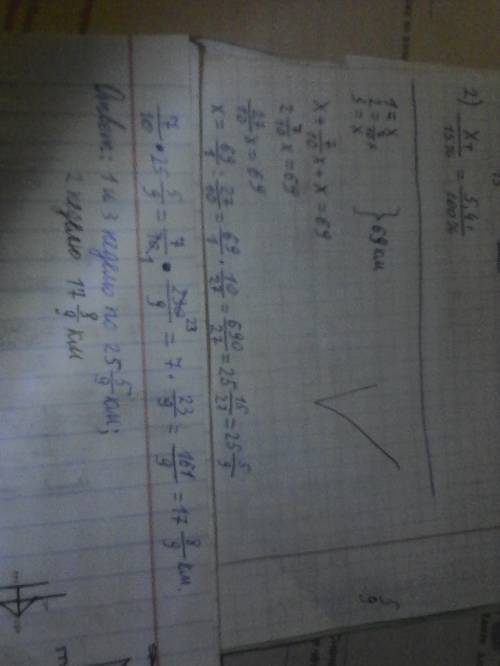 2) xт/15% = 5,4т/100%
1 = x
2 = 7/10 x } 69 км
3 = x
x + 7/10 x + x = 69
2 7/10 x = 69
27/10 x = 69
x = 69/1 : 27/10 = 69/1 · 10/27 = 690/27 = 25 15/27 = 25 5/9
7/10 · 25 5/9 = 7/10 1 · 230 23/9 = 7 · 23/9 = 161/9 = 17 8/9 км.
Ответ: 1 и 3 неделю по 25 5/9 км;
2 неделю 17 8/9 км
5
9